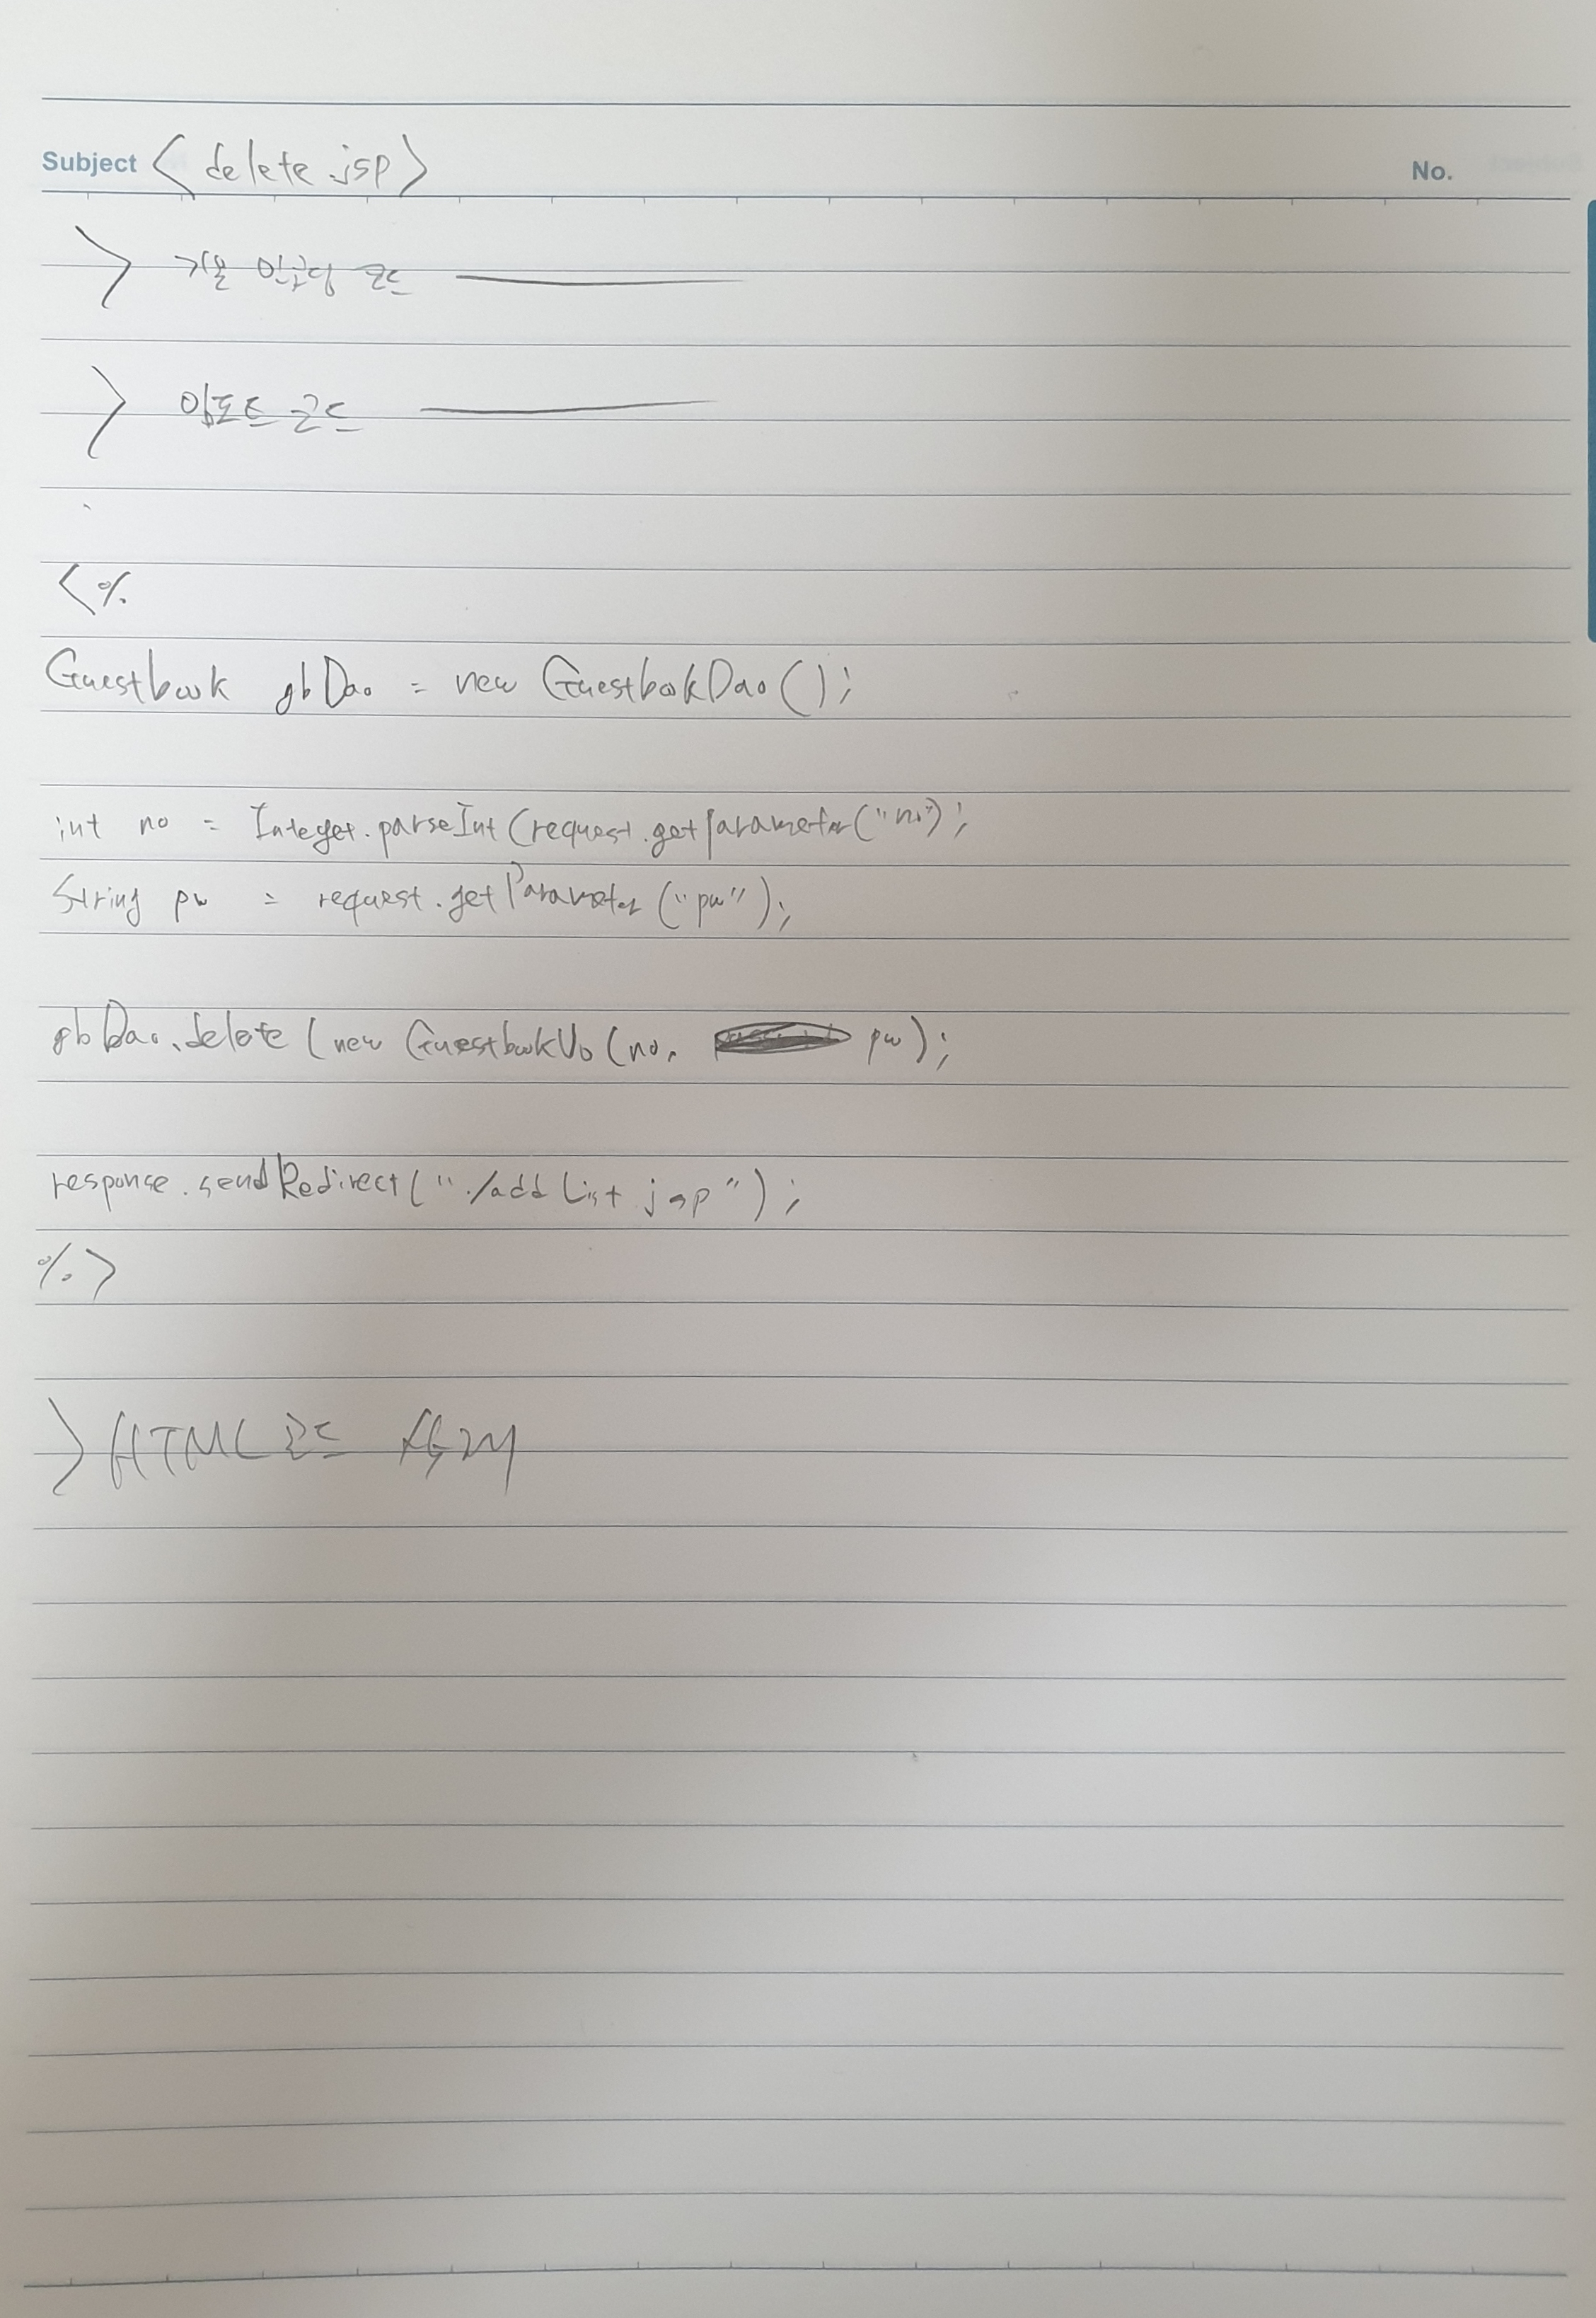 Subject <delete.jsp>
No.
> 기본 인코딩 코드
> 임포트 코드
<%
Guestbook gbDao = new GuestbookDao();
int no = Integer.parseInt(request.getParameter("no");
String pw = request.getParameter("pw");
gbDao.delete(new GuestbookVo(no, pw);
response.sendRedirect("./addList jsp");
%>
> HTML 코드 삭제